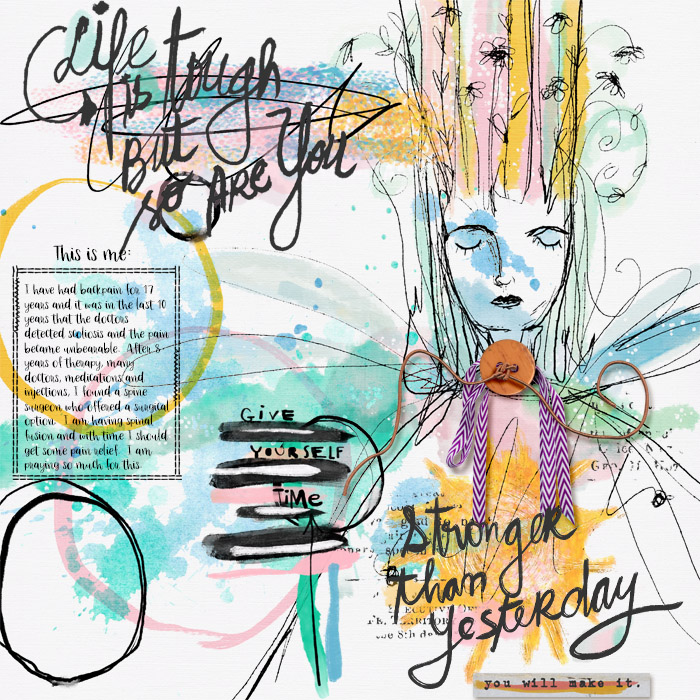 Life
is tough
But
so Are You
This is me:
I have had backpain for 17
years and it was in the last 10
years that the doctors
detected scoliosis and the pain
became unbearable. After 8
years of therapy, many
doctors, medications and
injections, I found a spine
surgeon who offered a surgical
option. I am having spinal
fusion and with time I should
get some pain relief. I am
praying so much for this
GIVE
YOURSELF
TiMe
Stronger
than
yesterday
you will make it.